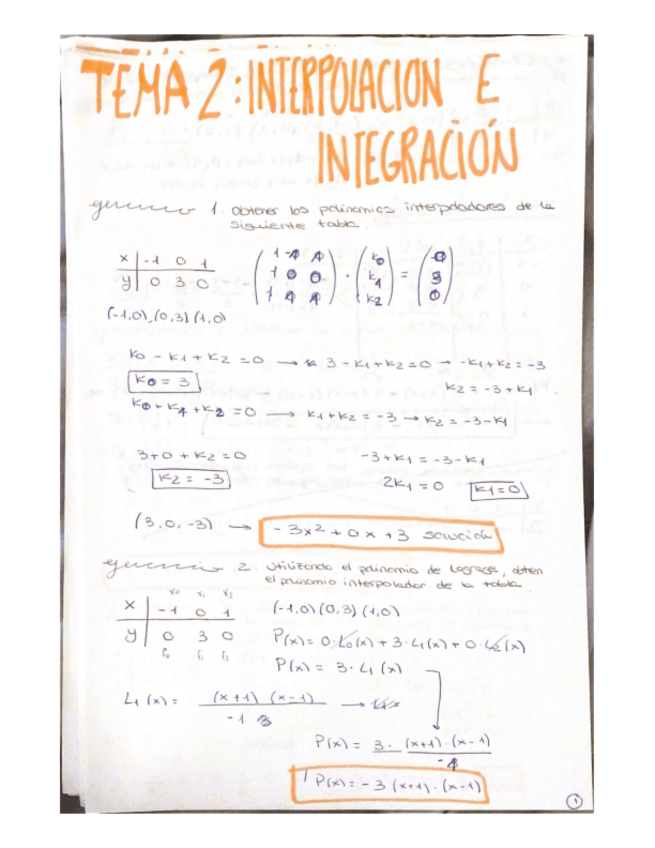 TEMA 2: INTERPOLACION E
INTEGRACIÓN
ejercicio 1 Obtener los polinomios interpoladores de la
siguiente tabla.
x | -1 0 1
y | 0 3 0
(1 -1 1) (k0) (0)
(1 0 0) · (k1) = (3)
(1 1 1) (k2) (0)
(-1,0), (0,3) (1,0)
k0 - k1 + k2 = 0 → 3 - k1 + k2 = 0 → -k1 + k2 = -3
k0 = 3
k2 = -3 + k1
k0 + k1 + k2 = 0 → k1 + k2 = -3 → k2 = -3 - k1
3 + 0 + k2 = 0
-3 + k1 = -3 - k1
k2 = -3
2k1 = 0
k1 = 0
(3, 0, -3) → -3x² + 0x + 3 solución
ejercicio 2. Utilizando el polinomio de Lagrage, obten
el polinomio interpolador de la tabla.
x0 x1 x2
x | -1 0 1
(-1,0) (0,3) (1,0)
y | 0 3 0
f0 f1 f2
P(x) = 0·L0(x) + 3·L1(x) + 0·L2(x)
P(x) = 3·L1(x)
L1(x) = (x+1) (x-1)
-1
→
P(x) = 3· (x+1)·(x-1)
-1
P(x) = -3(x+1)·(x-1)
1